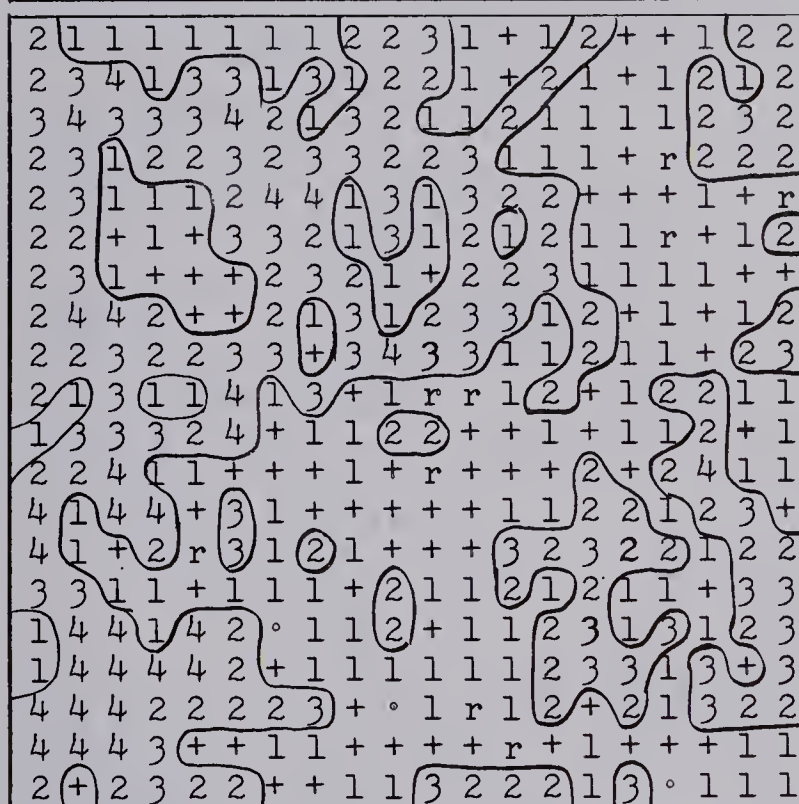 2 1 1 1 1 1 1 1 2 2 3 1 + 1 2 + + 1 2 2
2 3 4 1 3 3 1 3 1 2 2 1 + 2 1 + 1 2 1 2
3 4 3 3 3 4 2 1 3 2 1 1 2 1 1 1 1 2 3 2
2 3 1 2 2 3 2 3 3 2 2 3 1 1 1 + r 2 2 2
2 3 1 1 1 2 4 4 1 3 1 3 2 2 + + + 1 + r
2 2 + 1 + 3 3 2 1 3 1 2 1 2 1 1 r + 1 2
2 3 1 + + + 2 3 2 1 + 2 2 3 1 1 1 1 + +
2 4 4 2 + + 2 1 3 1 2 3 3 1 2 + 1 + 1 2
2 2 3 2 2 3 3 + 3 4 3 3 1 1 2 1 1 + 2 3
2 1 3 1 1 4 1 3 + 1 r r 1 2 + 1 2 2 1 1
1 3 3 3 2 4 + 1 1 2 2 + + 1 + 1 1 2 + 1
2 2 4 1 1 + + + 1 + r + + + 2 + 2 4 1 1
4 1 4 4 + 3 1 + + + + + 1 1 2 2 1 2 3 +
4 1 + 2 r 3 1 2 1 + + + 3 2 3 2 2 1 2 2
3 3 1 1 + 1 1 1 + 2 1 1 2 1 2 1 1 + 3 3
1 4 4 1 4 2 ∘ 1 1 2 + 1 1 2 3 1 3 1 2 3
1 4 4 4 4 2 + 1 1 1 1 1 1 2 3 3 1 3 + 3
4 4 4 2 2 2 2 3 + ∘ 1 r 1 2 + 2 1 3 2 2
4 4 4 3 + + 1 1 + + + + r + 1 + + + 1 1
2 + 2 3 2 2 + + 1 1 3 2 2 2 1 3 ∘ 1 1 1